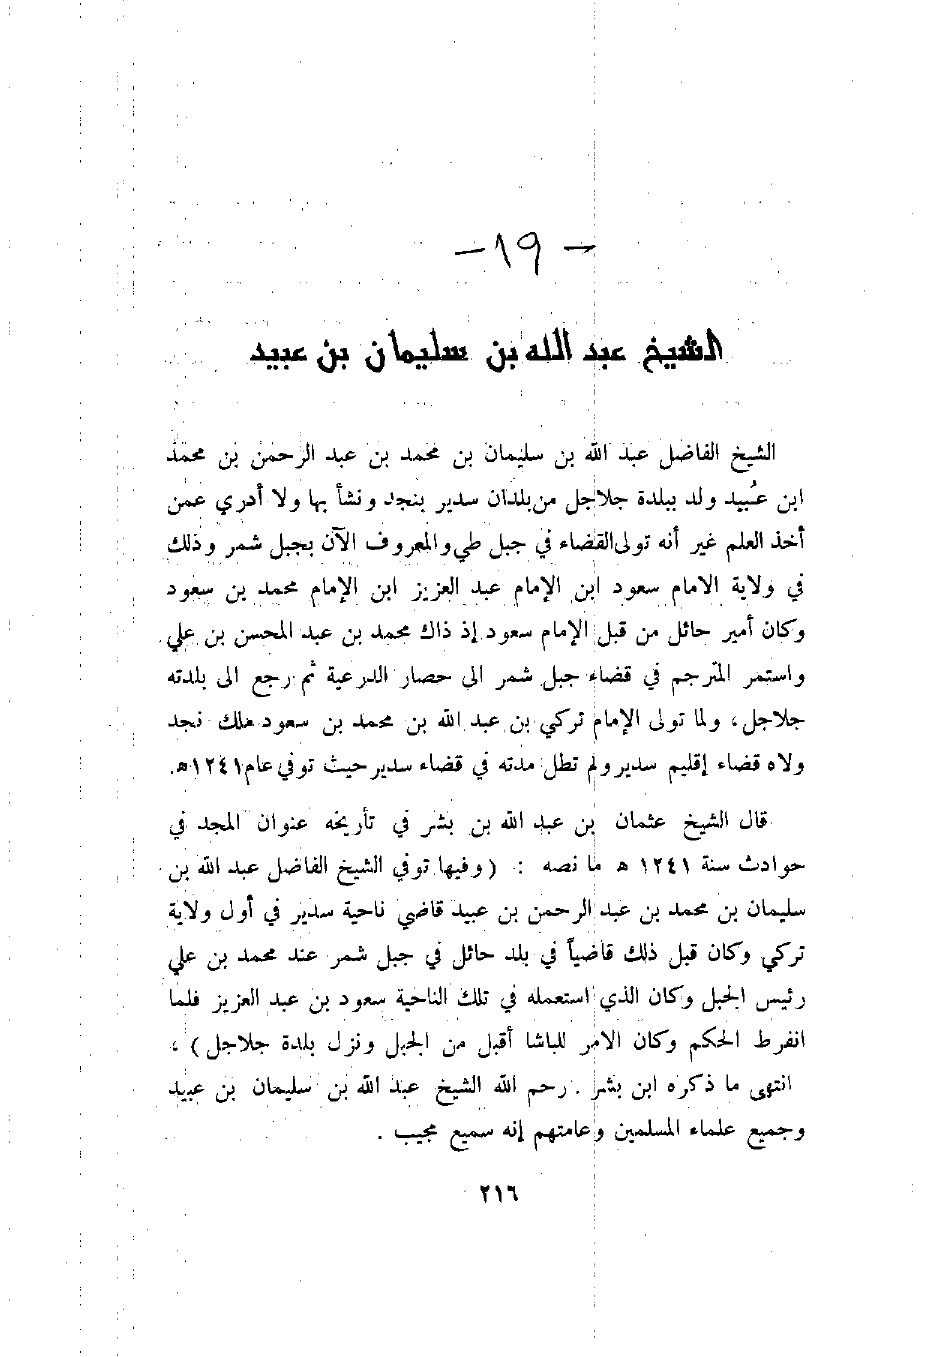 - ١٩ -
الشيخ عبد الله بن سليمان بن عبيد
الشيخ الفاضل عبد الله بن سليمان بن محمد بن عبد الرحمن بن محمد
ابن عُبيد ولد ببلدة جلاجل من بلدان سدير بنجد ونشأ بها ولا أدري عمن
أخذ العلم غير أنه تولى القضاء في جبل طي والمعروف الآن بجبل شمر وذلك
في ولاية الامام سعود ابن الإمام عبد العزيز ابن الإمام محمد بن سعود
وكان أمير حائل من قبل الإمام سعود إذ ذاك محمد بن عبد المحسن بن علي
واستمر المترجم في قضاء جبل شمر الى حصار الدرعية ثم رجع الى بلدته
جلاجل، ولما تولى الإمام تركي بن عبد الله بن محمد بن سعود ملك نجد
ولاه قضاء إقليم سدير ولم تطل مدته في قضاء سدير حيث توفي عام ١٢٤١ه.
قال الشيخ عثمان بن عبد الله بن بشر في تأريخه عنوان المجد في
حوادث سنة ١٢٤١ ه ما نصه : (وفيها توفي الشيخ الفاضل عبد الله بن
سليمان بن محمد بن عبد الرحمن بن عبيد قاضي ناحية سدير في أول ولاية
تركي وكان قبل ذلك قاضياً في بلد حائل في جبل شمر عند محمد بن علي
رئيس الجبل وكان الذي استعمله في تلك الناحية سعود بن عبد العزيز فلما
انفرط الحكم وكان الامر للباشا أقبل من الجبل ونزل بلدة جلاجل) ،
انتهى ما ذكره ابن بشر . رحم الله الشيخ عبد الله بن سليمان بن عبيد
وجميع علماء المسلمين وعامتهم إنه سميع مجيب .
٢١٦